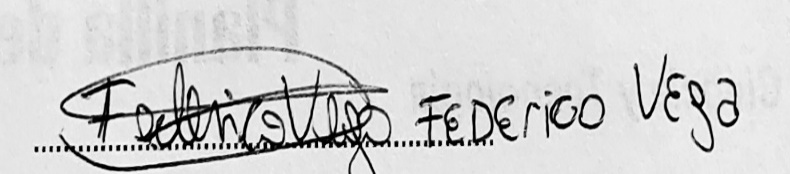 Federico Vega FEDErico VEga